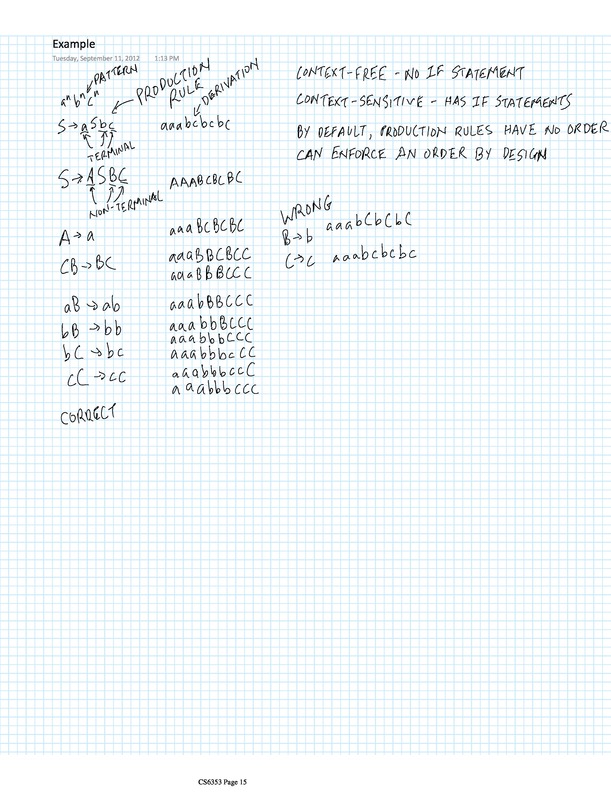 Example
Tuesday, September 11, 2012 1:13 PM
aⁿbⁿcⁿ PATTERN
PRODUCTION RULE
DERIVATION
S→aSbc aaabcbcbc
TERMINAL
S→ASBC AAABCBCBC
NON-TERMINAL
A→a aaaBCBCBC
CB→BC aaaBBCBCC
aaaBBBCCC
aB→ab aaabBBCCC
bB→bb aaabbBCCC
aaabbbCCC
bC→bc aaabbbcCC
cC→cc aaabbbccC
aaabbbccc
CORRECT
CONTEXT-FREE - NO IF STATEMENT
CONTEXT-SENSITIVE - HAS IF STATEMENTS
BY DEFAULT, PRODUCTION RULES HAVE NO ORDER
CAN ENFORCE AN ORDER BY DESIGN
WRONG
B→b aaabCbCbC
C→c aaabcbcbc
CS6353 Page 15